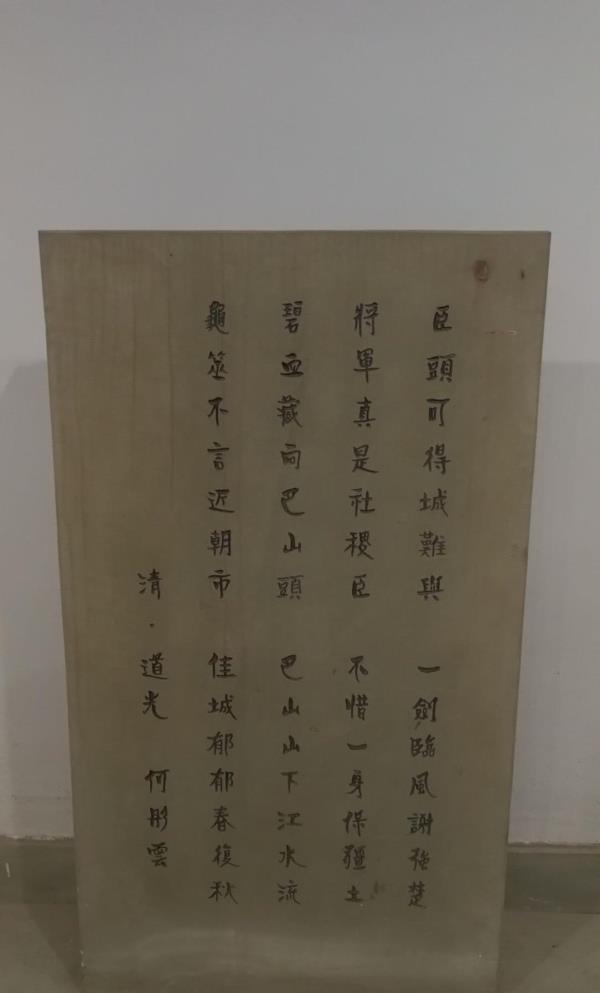 臣頭可得城難與 一劍臨風謝強楚
將軍真是社稷臣 不惜一身保疆土
碧血藏向巴山頭 巴山山下江水流
龜筮不言近朝市 佳城郁郁春復秋
清·道光 何彤雲